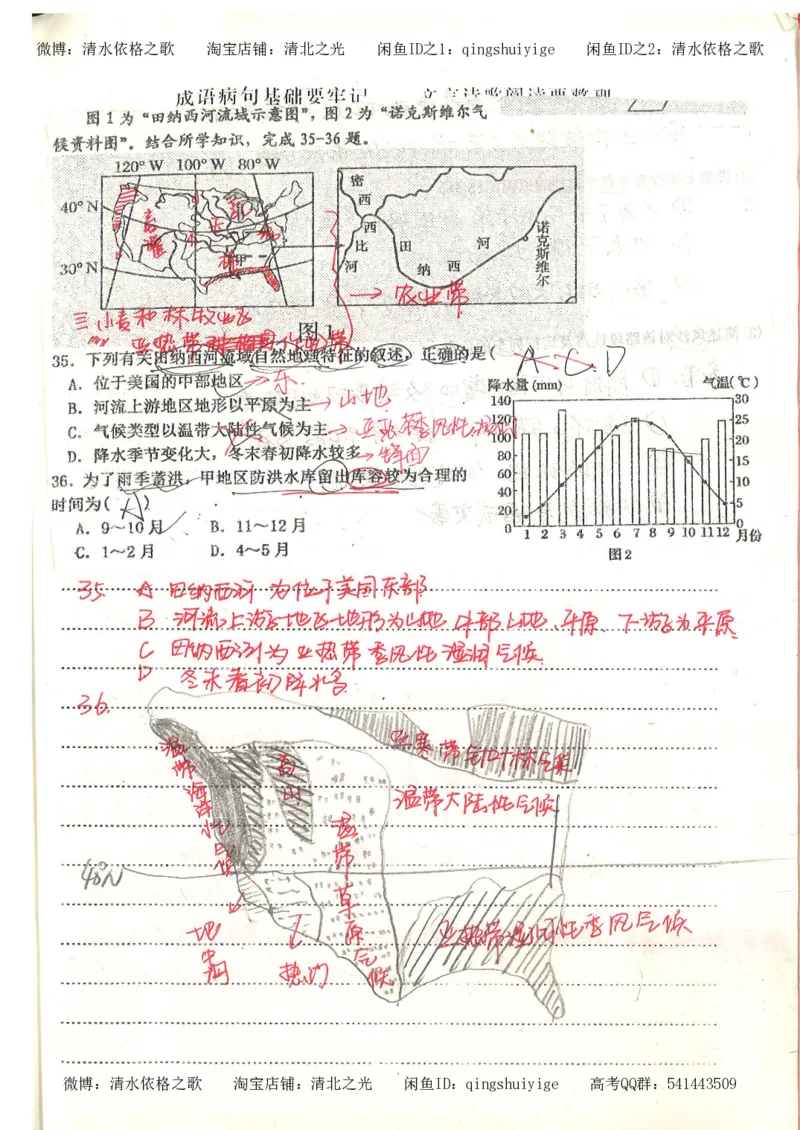 微博：清水依格之歌 淘宝店铺：清北之光 闲鱼ID之1：qingshuiyige 闲鱼ID之2：清水依格之歌
成语病句基础要牢记 文言诗歌阅读要整理
图1为“田纳西河流域示意图”，图2为“诺克斯维尔气
候资料图”。结合所学知识，完成35-36题。
120°W 100°W 80°W
40°N
30°N
甲
密
西
西
比
河
田
纳
西
河
诺
克
斯
维
尔
→农业带
三 小麦和林牧业区
亚热带
图1
35．下列有关田纳西河流域自然地理特征的叙述，正确的是（
A.C.D
A．位于美国的中部地区→东
B．河流上游地区地形以平原为主→山地
C．气候类型以温带大陆性气候为主→亚热带季风性湿润
D．降水季节变化大，冬末春初降水较多→
36．为了雨季蓄洪，甲地区防洪水库留出库容较为合理的
时间为（A）
A．9～10月 B．11～12月
C．1～2月 D．4～5月
降水量(mm) 气温(℃)
140 30
120 25
100 20
80 15
60 10
40 5
20 0
0
1 2 3 4 5 6 7 8 9 10 11 12 月份
图2
35. A 田纳西河为位于美国东部
B 河流上游地区地形为山地 中部山地、平原、下游为平原
C 田纳西河为亚热带季风性湿润气候
D 冬末春初降水多
36.
温带海洋性气候
高山
亚寒带针叶林气候
温带大陆性气候
温带草原气候
40°N
地中海
热门
亚热带湿润性季风气候
微博：清水依格之歌 淘宝店铺：清北之光 闲鱼ID：qingshuiyige 高考QQ群：541443509